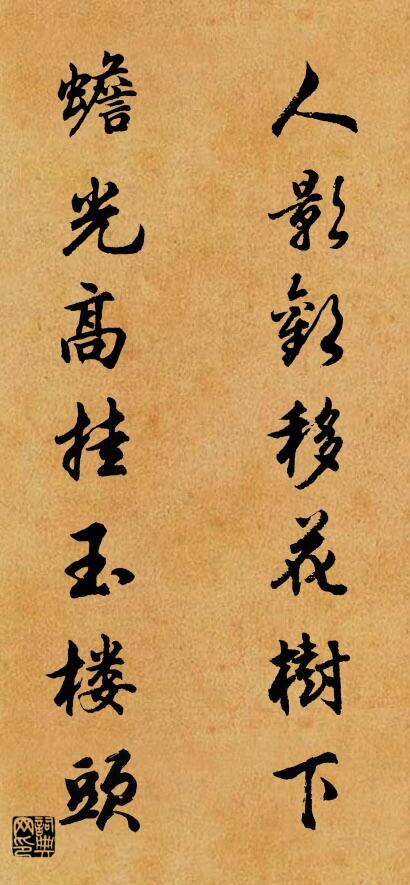 人影移花樹下
蟾光高挂玉楼頭
詞典网印